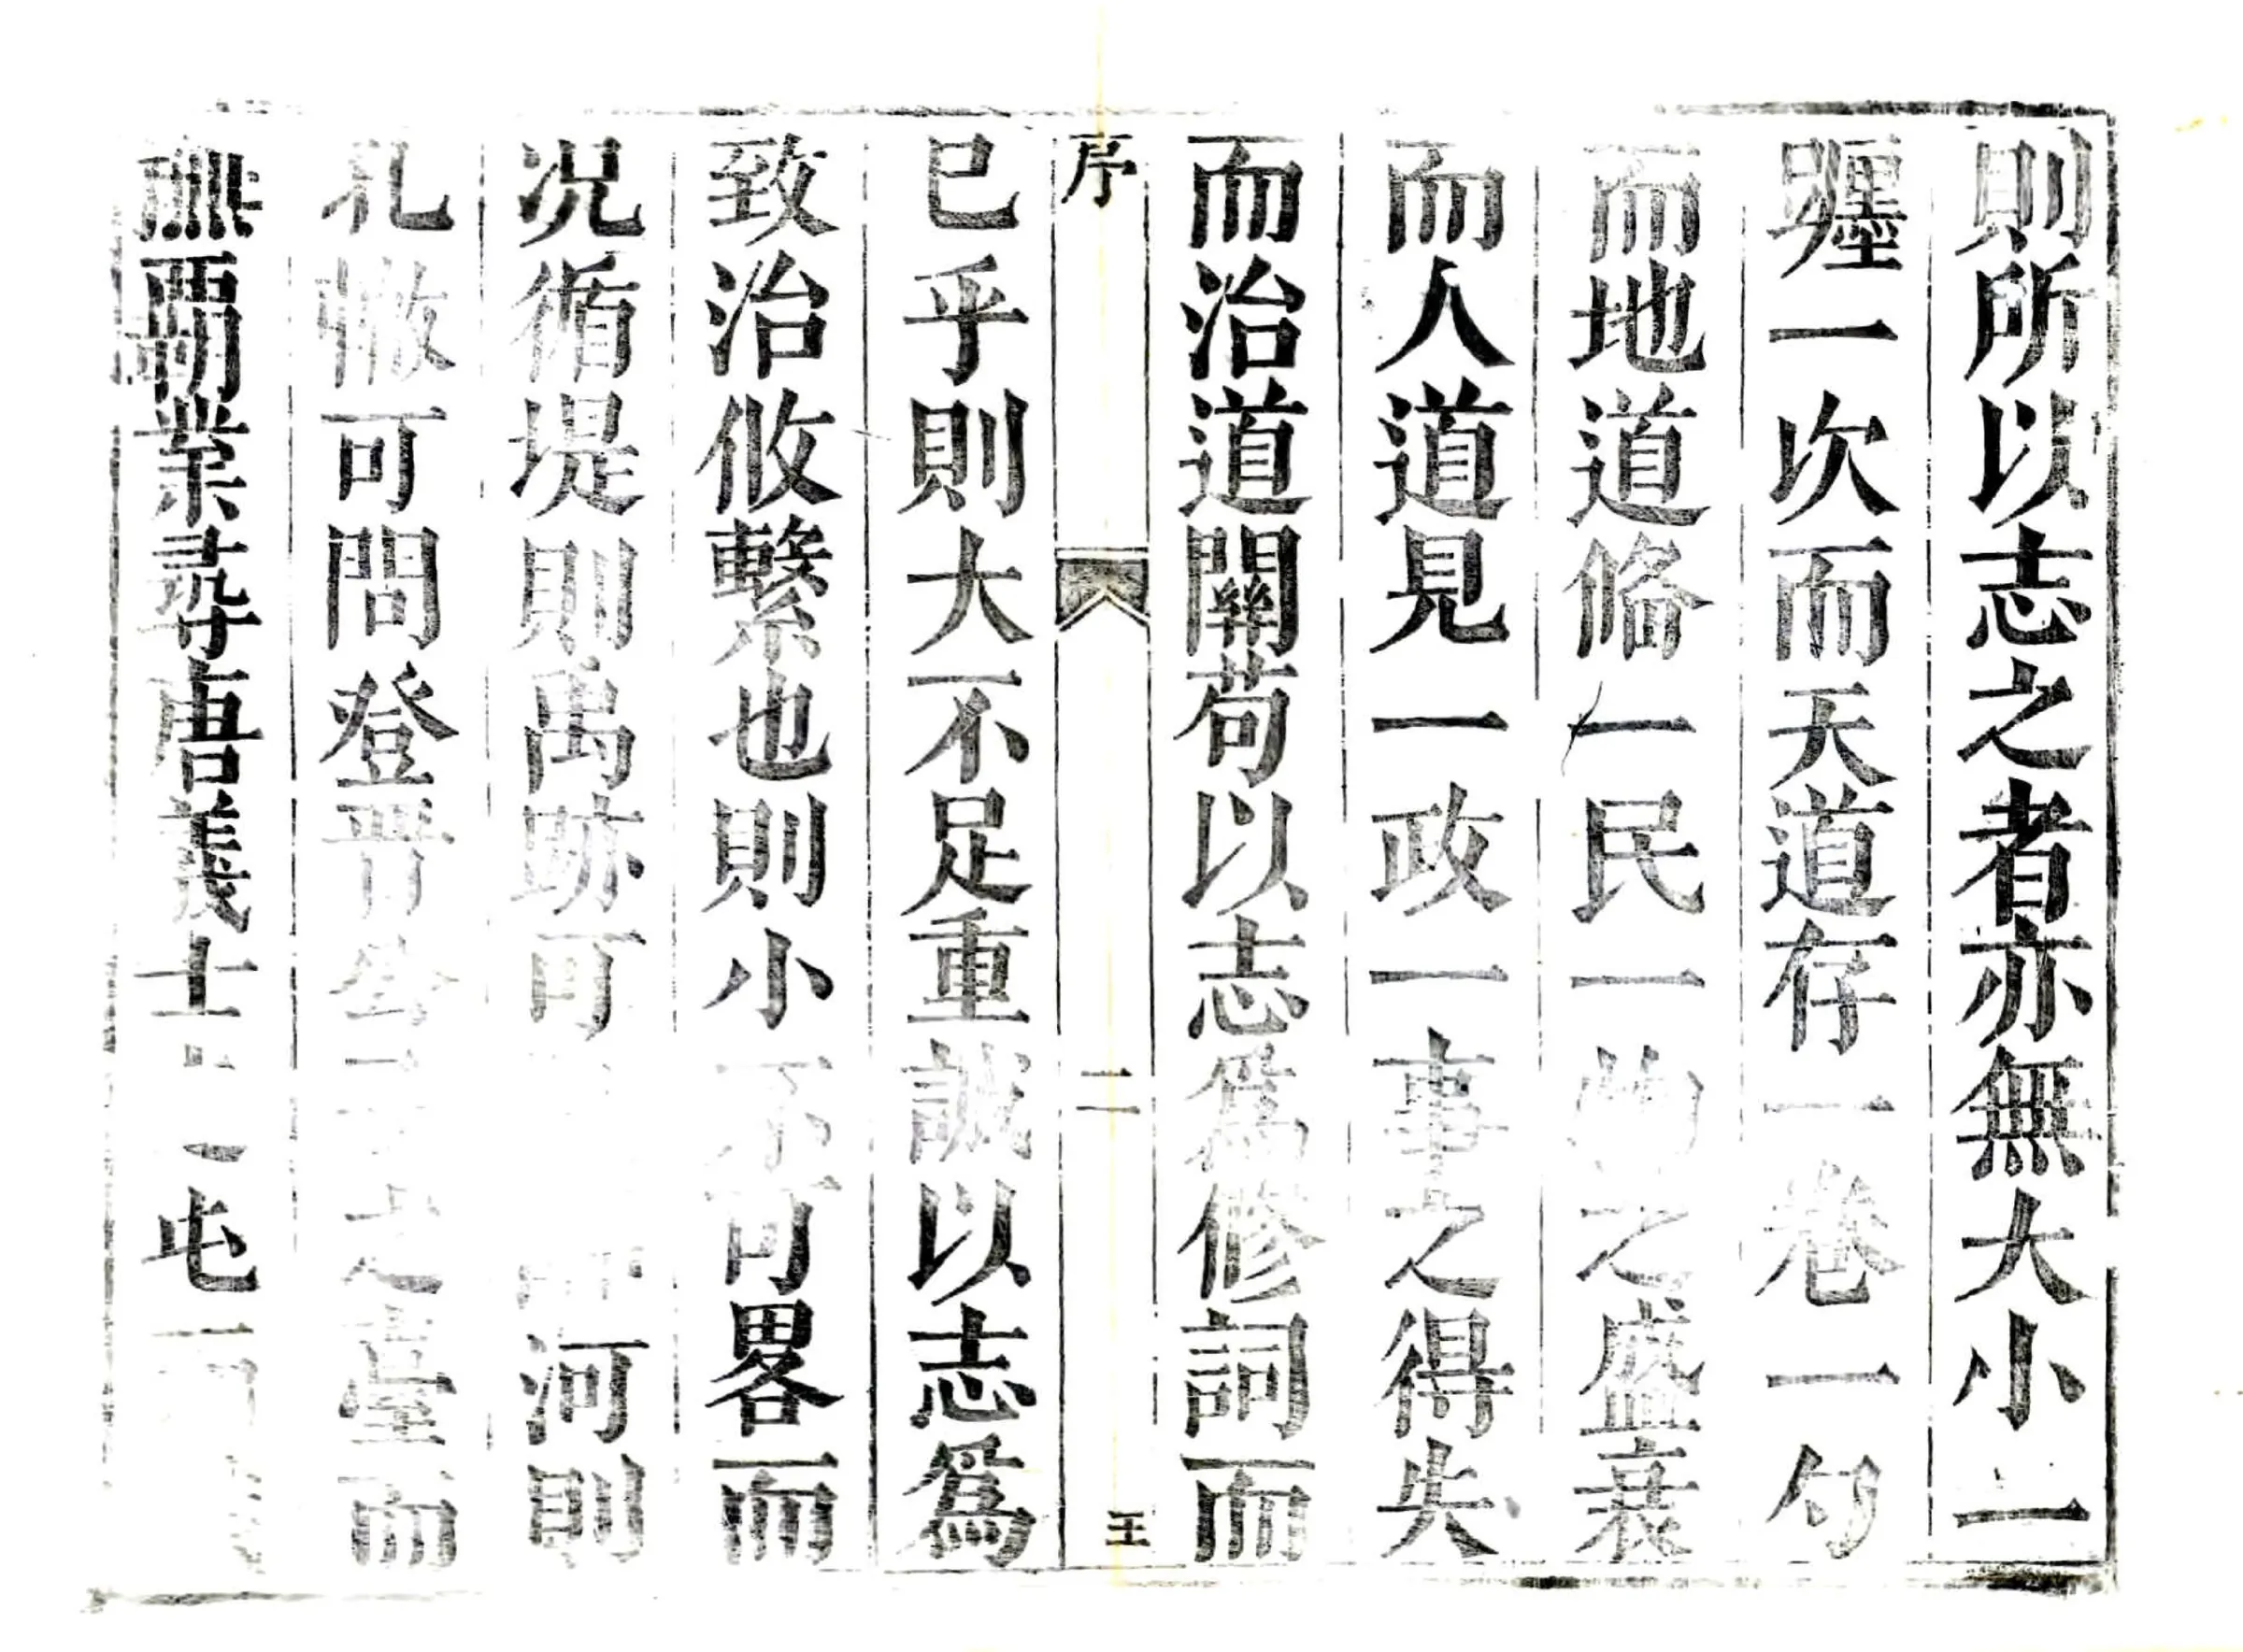 則所以志之者亦無大小一
躔一次而天道存一卷一勺
而地道俻一民一物之盛衰
而人道見一政一事之得失
而治道關苟以志爲修詞而
序
二
王
已乎則大不足重誠以志爲
致治攸繫也則小不可畧而
况循堤則禹跡可河則
礼敝可問登晋之臺而
霸業尋唐義士屯